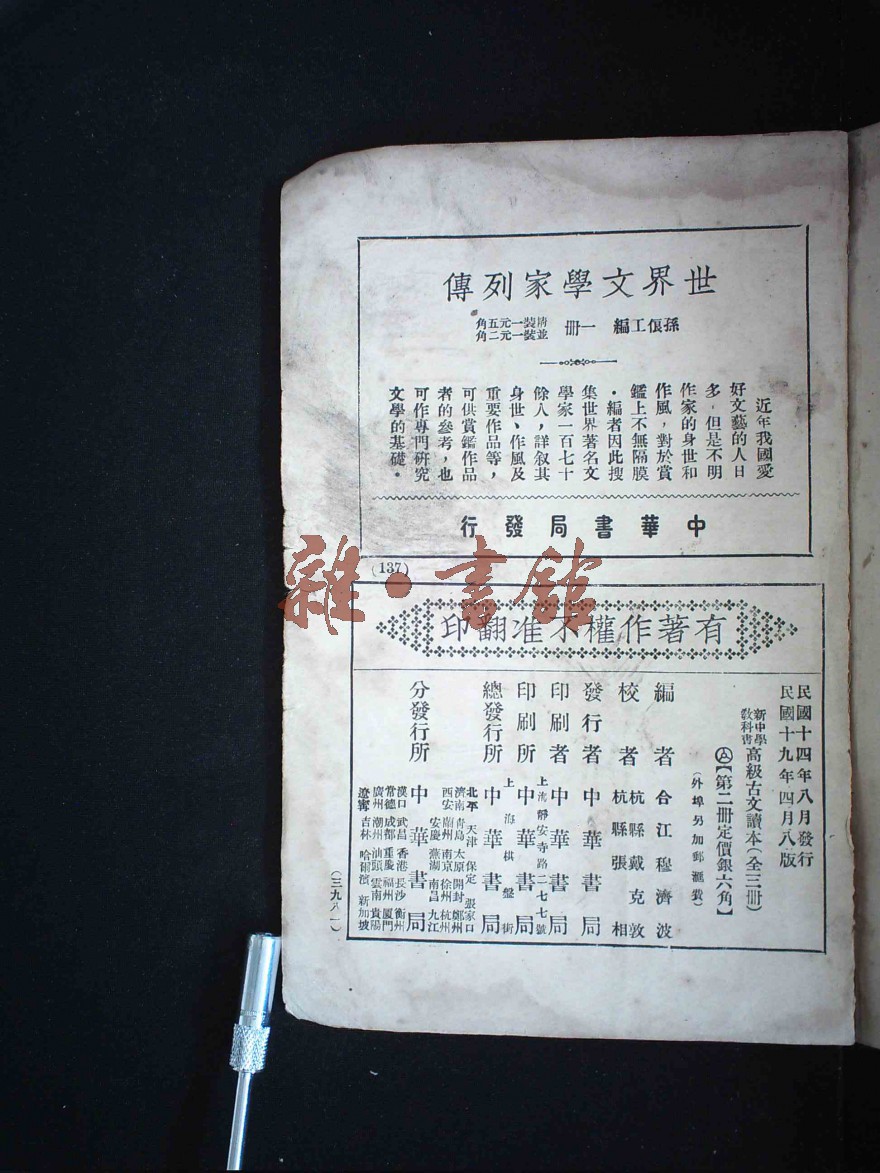 世界文學家列傳
孫俍工編 一冊 精裝一元五角
並裝一元二角
近年我國愛
好文藝的人日
多，但是不明
作家的身世和
作風，對於賞
鑑上不無隔膜
。編者因此搜
集世界著名文
學家一百七十
餘人，詳叙其
身世、作風及
重要作品等，
可供賞鑑作品
者的參考，也
可作專門研究
文學的基礎。
中華書局發行
(137)
雜·書館
有著作權不准翻印
民國十四年八月發行
民國十九年四月八版
新中學教科書 高級古文讀本（全三冊）
【第二冊定價銀六角】
（外埠另加郵滙費）
編者 合江穆濟波
校者 杭縣戴克敦
杭縣張相
發行者 中華書局
印刷者 中華書局
印刷所 上海靜安寺路二七七號
中華書局
總發行所 上海棋盤街
中華書局
分發行所 中華書局
北平 天津 保定 張家口
濟南 青島 太原 開封 鄭州
西安 蘭州 南京 徐州 杭州
安慶 蕪湖 南昌 九江
漢口 武昌 香港 長沙 衡州
常德 成都 重慶 福州 廈門
廣州 潮州 汕頭 雲南 貴陽
遼寧 吉林 哈爾濱 新加坡